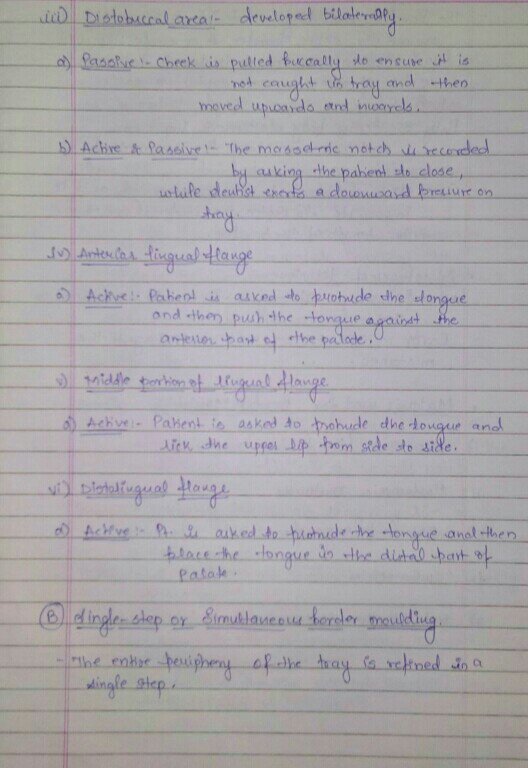 iii) Distobuccal area:- developed bilaterally.
a) Passive:- Cheek is pulled buccally to ensure it is
not caught in tray and then
moved upwards and inwards.
b) Active & Passive:- The masseteric notch is recorded
by asking the patient to close,
while dentist exerts a downward pressure on
tray.
iv) Anterior lingual flange
a) Active:- Patient is asked to protrude the tongue
and then push the tongue against the
anterior part of the palate.
v) Middle portion of lingual flange
a) Active:- Patient is asked to protrude the tongue and
lick the upper lip from side to side.
vi) Distolingual flange
a) Active:- Pt. is asked to protrude the tongue and then
place the tongue in the distal part of
palate.
B) Single-step or Simultaneous border moulding.
- The entire periphery of the tray is refined in a
single step.